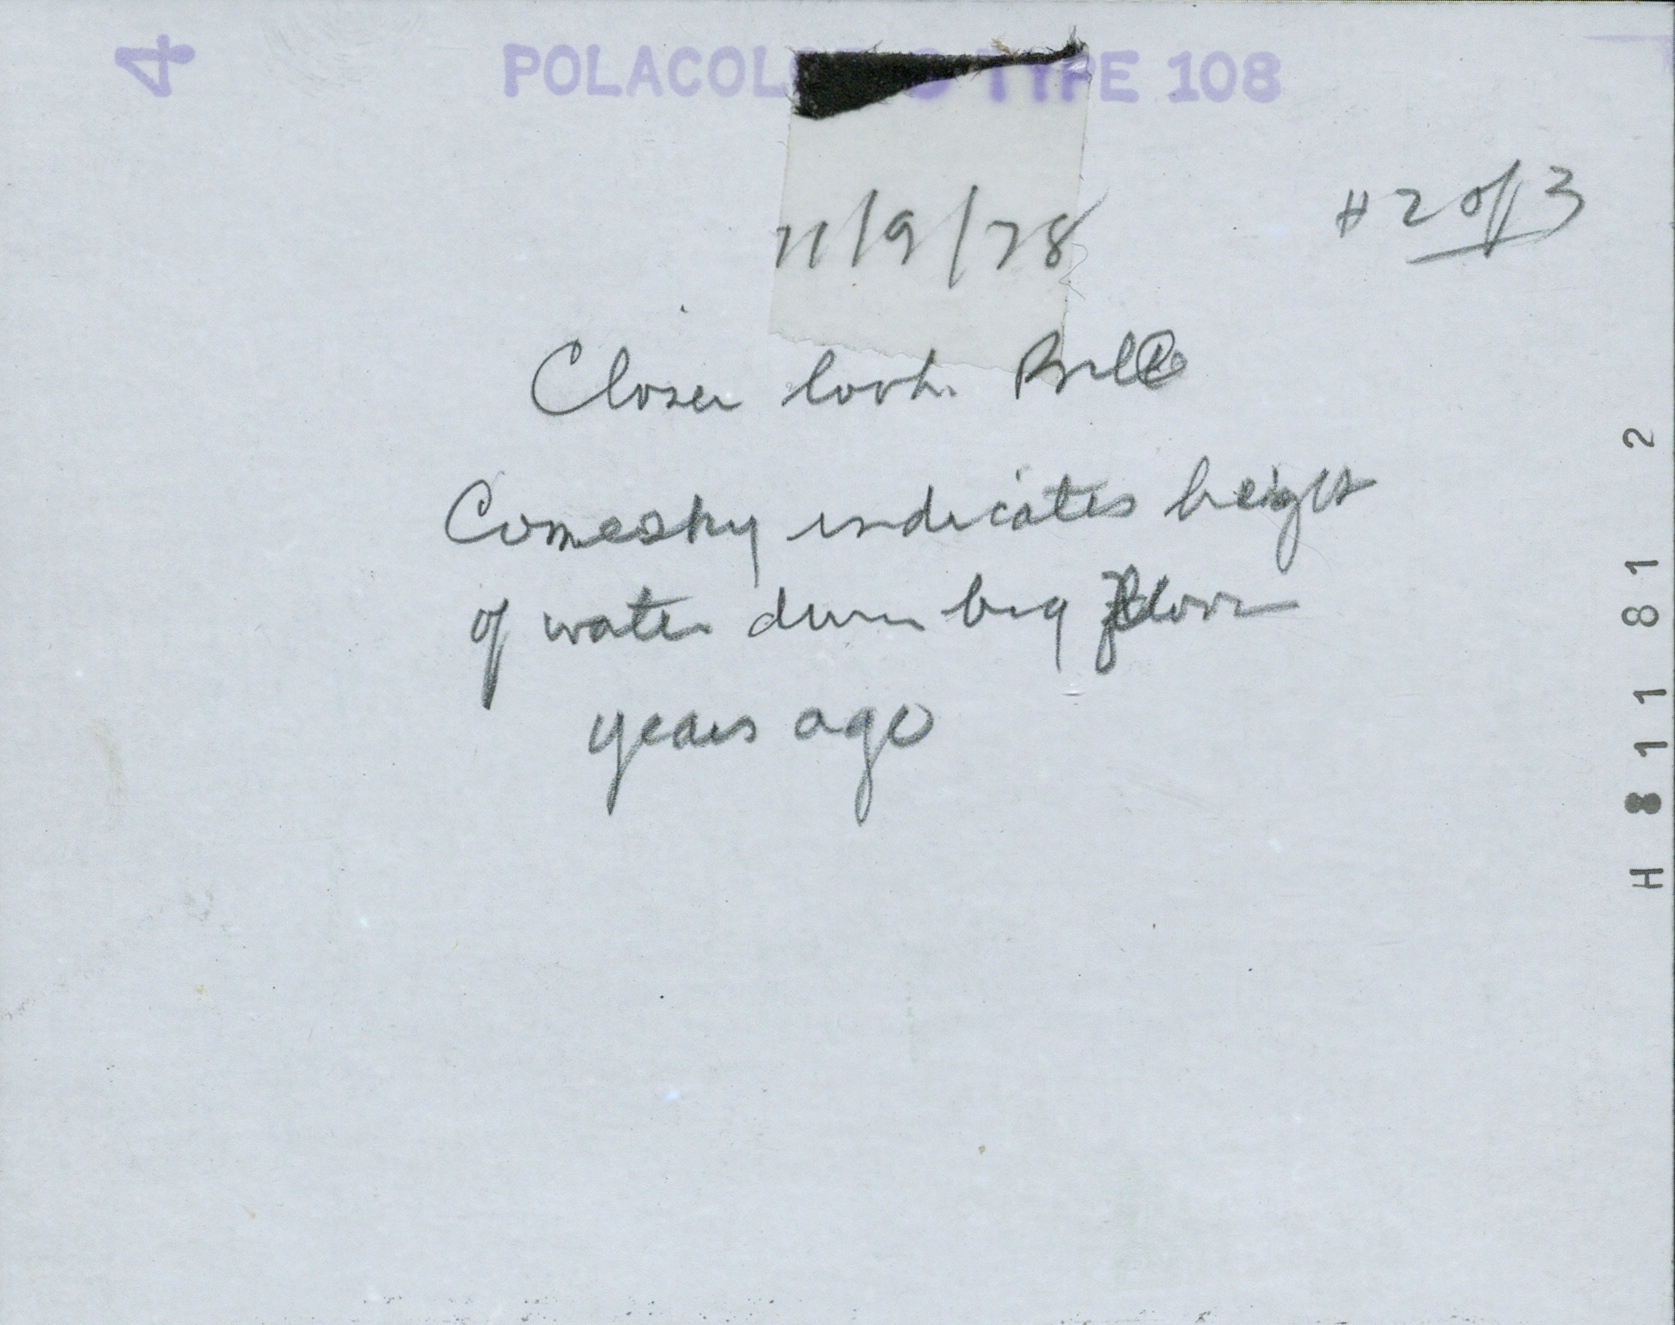 4
POLACOLOR TYPE 108
11/9/78
#2 of 3
Closer look. Bill
Comesky indicates height
of water durin big floor
years ago
H 811 81 2